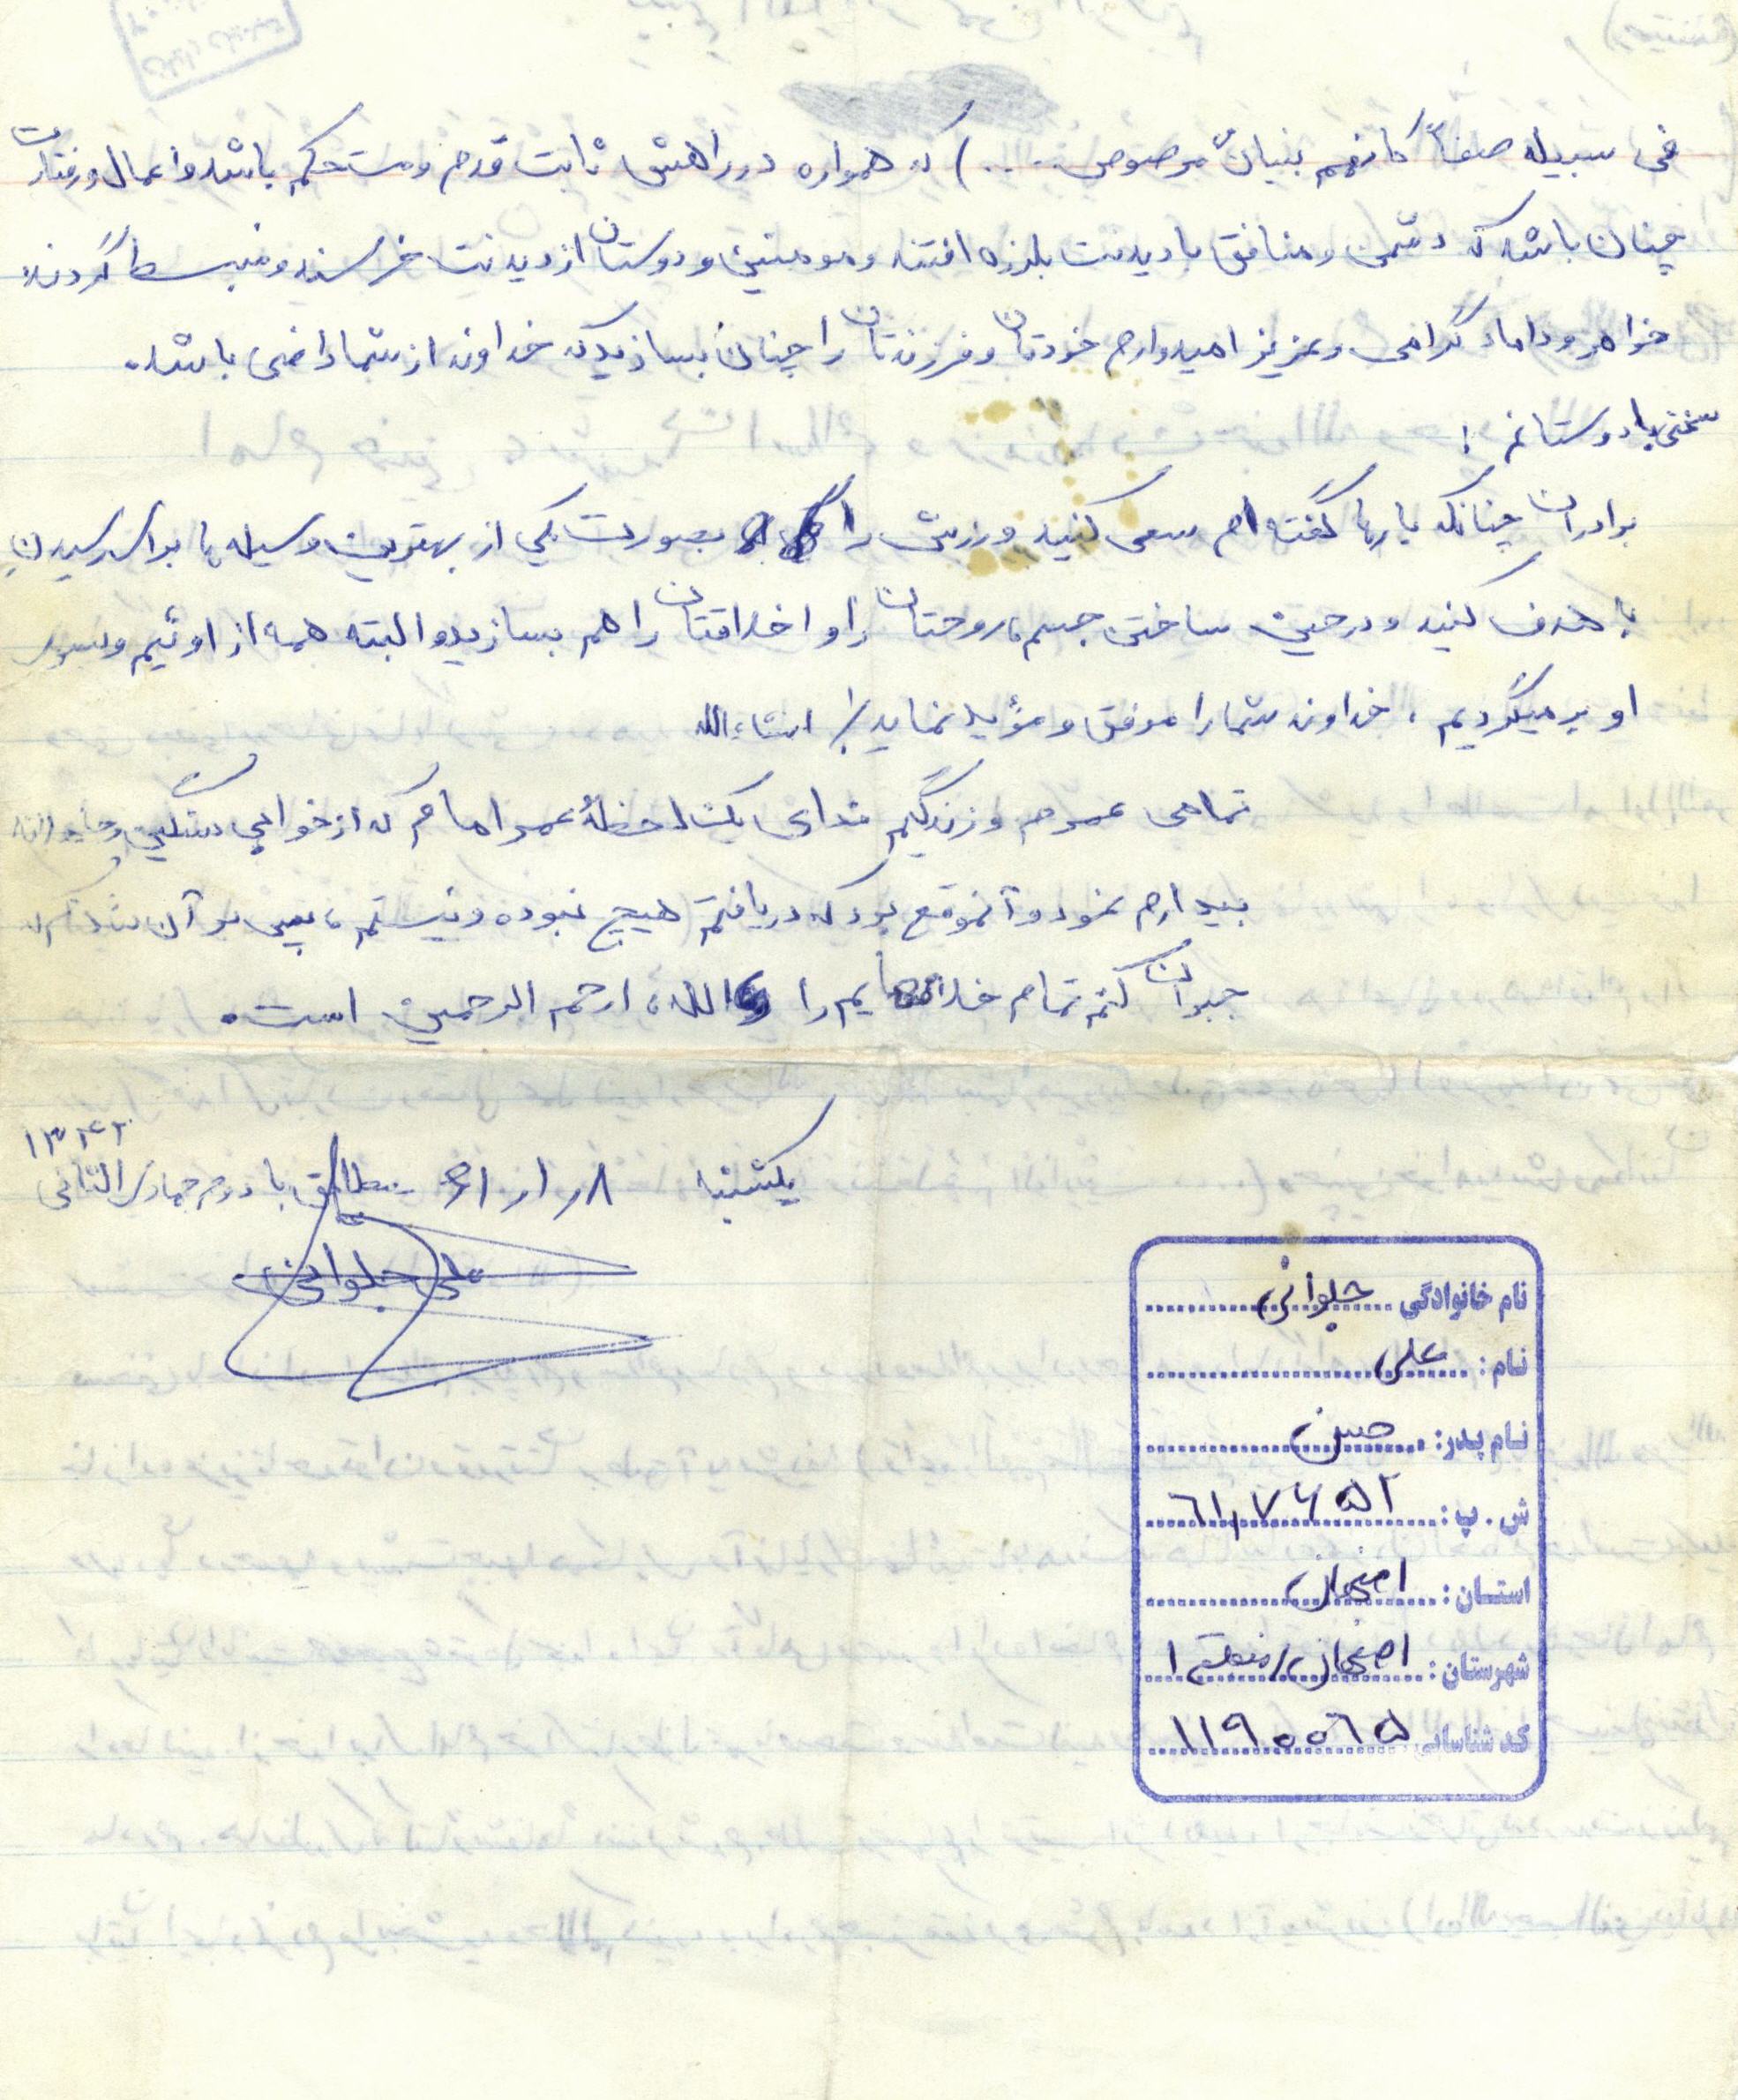 فی سبیله صفاً کانهم بنیانٌ مرصوص ....) که همواره در راهش ثابت قدم و مستحکم باشد و اعمال و رفتارت
چنان باشد که دشمن و منافق با دیدنت بلرزه افتند و مومنین و دوستان از دیدنت خرسند و منبسط گردند
خواهر و داماد گرامی و عزیز امیدوارم خودتان و فرزندتان را چنان بسازید که خداوند از شما راضی باشد.
سخنی با دوستانم :
برادران چنانکه بارها گفته ام سعی کنید ورزش را بصورت یکی از بهترین وسیله ها برای رسیدن
به هدف کنید و در حین ساختن جسم، روحتان را و اخلاقتان را هم بسازید و البته همه از اوئیم و بسوی
او برمیگردیم ، خداوند شما را موفق و مؤید نماید/ انشاءالله
تمامی عمرم و زندگیم فدای یک لحظهٔ عمر امام که از خوابی سنگین
بیدارم نمود و آنموقع بود که دریافتم هیچ نبوده و نیستم، پس بر آن شدم که
جبران کنم تمام خلافهایم را والله، ارحم الرحمین است.
یکشنبه ۸ر۱ر۶۱ مطابق با دوم جمادی الثانی
علی جلوانی
نام خانوادگی جلوانی
نام : علی
نام پدر: حسن
ش . پ : ۶۱٫۷۶۵۲
استان : اصفهان
شهرستان : اصفهان/منطقه ۱
کد شناسایی ۱۱۹۰۰۶۵